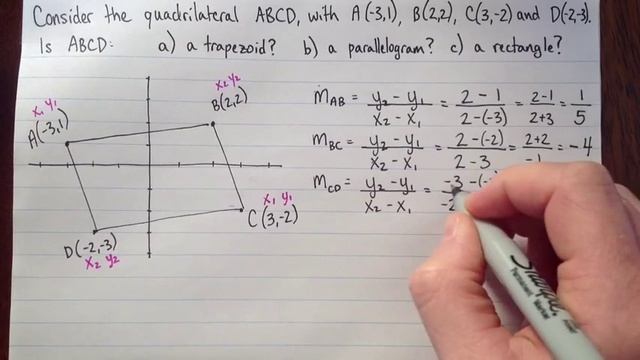 Consider the quadrilateral ABCD, with A(-3,1), B(2,2), C(3,-2) and D(-2,-3).
Is ABCD: a) a trapezoid? b) a parallelogram? c) a rectangle?
x₁ y₁
A(-3,1)
x₂ y₂
B(2,2)
x₁ y₁
C(3,-2)
D(-2,-3)
x₂ y₂
m_AB = y₂ - y₁ / x₂ - x₁ = 2 - 1 / 2 - (-3) = 2-1 / 2+3 = 1 / 5
m_BC = y₂ - y₁ / x₂ - x₁ = 2 - (-2) / 2 - 3 = 2+2 / -1 = -4
m_CD = y₂ - y₁ / x₂ - x₁ = -3 - (- / -2
Sharpie